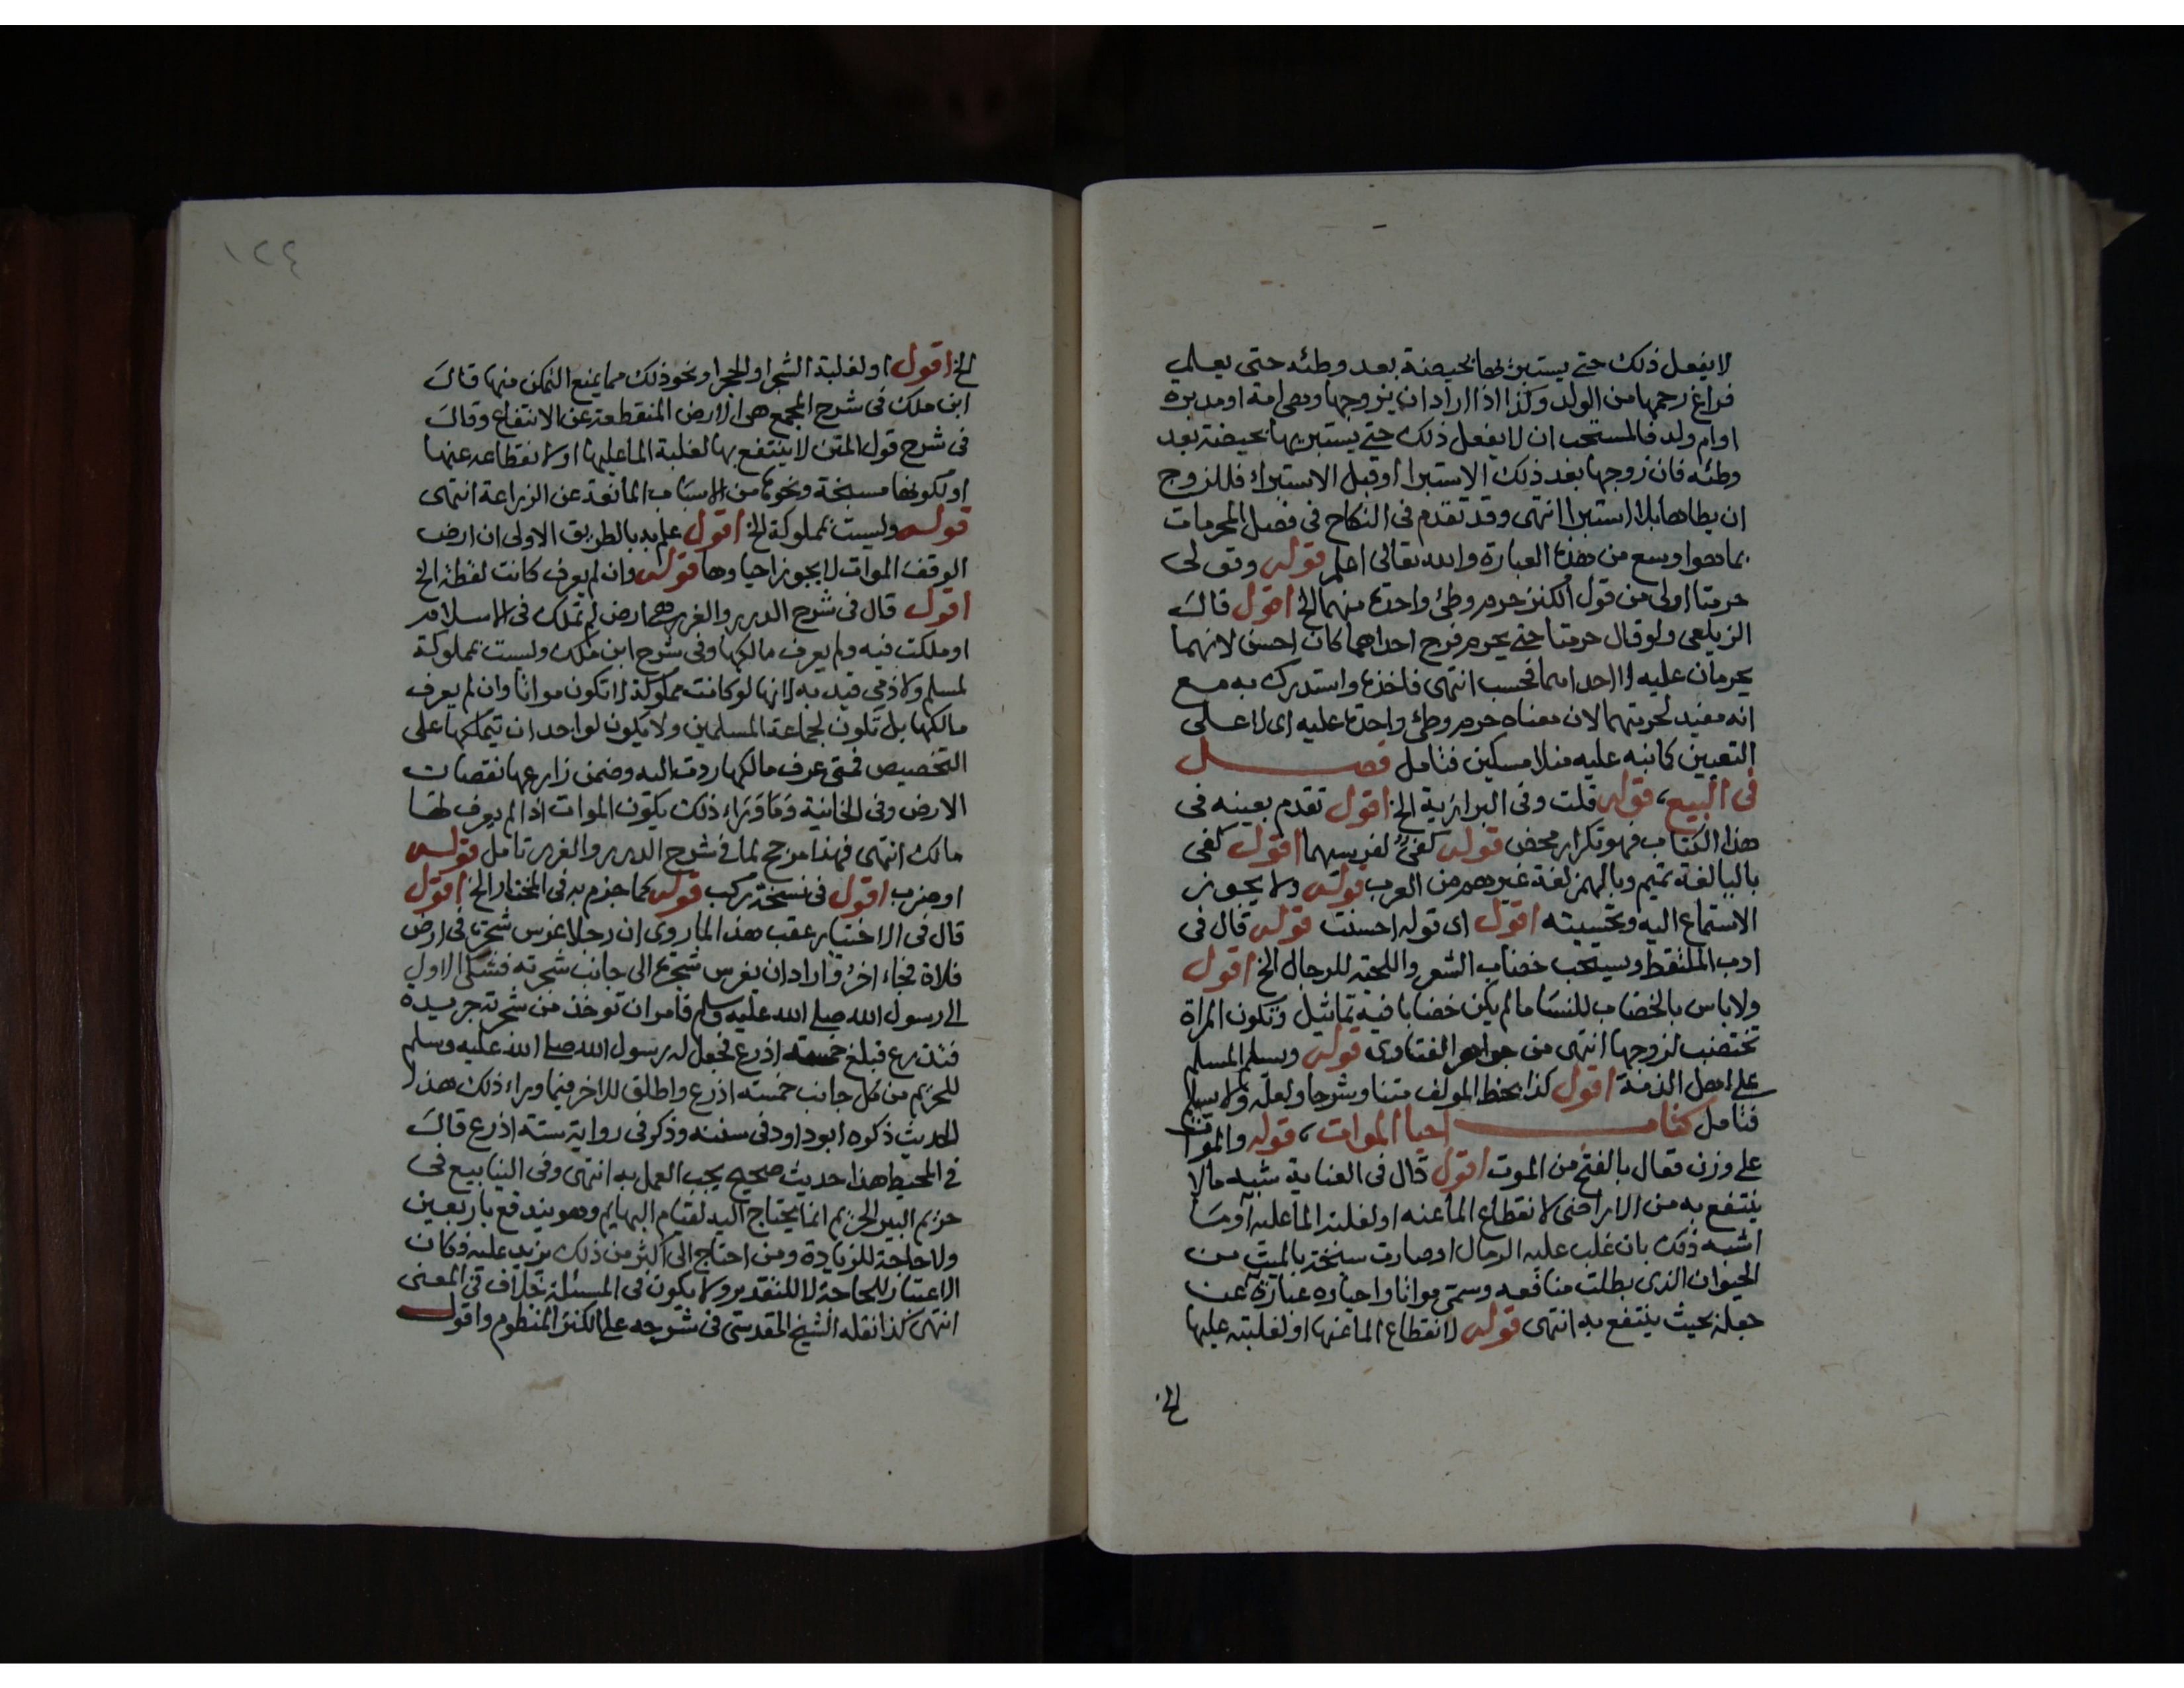 لا يفعل ذلك حتى يستبريها بحيضة بعد وطئه حتى يعلم
فراغ رحمها من الولد وكذا اذا اراد ان يزوجها وهى امة او مدبرة
او ام ولد فالمستحب ان لا يفعل ذلك حتى يستبريها بحيضة بعد
وطئه فان زوجها بعد ذلك الاستبرا او قبل الاستبراء فللزوج
ان يطاها بلا استبرا انتهى وقد تقدم فى النكاح فى فصل المحرمات
بما هو اوسع من هذه العبارة والله تعالى اعلم قوله وقولى
حرمتا اولى من قول الكنز حرم وطئ واحدة منهما الخ اقول قال
الزيلعى ولو قال حرمتا حتى يحرم فرج احداهما كان احسن لانهما
يحرمان عليه لا احداهما فحسب انتهى فاخذه واستدرك به مع
انه مفيد لحرمتهما لان معناه حرم وطئ واحدة عليه اى لا على
التعيين كما نبه عليه منلا مسكين فتامل فصل
فى البيع، قوله قلت وفى البزازية الخ اقول تقدم بعينه فى
هذا الكتاب فهو تكرار محض قوله كفئ لفريسهما اقول كفى
بالبا لغة تميم وبالهمز لغة غيرهم من العرب قوله ولا يجوز
الاستماع اليه وتحسينه اقول اى قوله احسنت قوله قال فى
ادب الملتقط ويستحب خضاب الشعر واللحية للرجال الخ اقول
ولا باس بالخضاب للنسا ما لم يكن خضابا فيه تماثيل وتكون المراة
تختضب لزوجها انتهى من جواهر الفتاوى قوله ويسلم المسلم
على اهل الذمة اقول كذا بخط المولف متنا وشرحا ولعله ولا يسلم
فتامل كتاب احيا الموات، قوله والموات
على وزن فعال بالفتح من الموت اقول قال فى العناية شبه ما لا
ينتفع به من الاراضى لانقطاع الما عنه او لغلبة الما عليه او ما
اشبه ذلك بان غلب عليه الرمال او صارت سبخة بالميت من
الحيوان الذى بطلت منافعه وسمى مواتا واحياوه عبارة عن
جعله بحيث ينتفع به انتهى قوله لانقطاع الما عنها او لغلبته عليها
الخ
١٢٤
الخ اقول او لغلبة الشجر او الحجر او نحو ذلك مما يمنع التمكن منها قال
ابن ملك فى شرح المجمع هى الارض المنقطعة عن الانتفاع وقال
فى شرح قول المتن لا ينتفع بها لغلبة الما عليها او لانقطاعه عنها
او لكونها مسبخة ونحوها من الاسباب المانعة عن الزراعة انتهى
قوله وليست بمملوكة الخ اقول علم به بالطريق الاولى ان ارض
الوقف الموات لا يجوز احياوها قوله وان لم يعرف كانت لقطة الخ
اقول قال فى شرح الدرر والغرر هى ارض لم تملك فى الاسلام
او ملكت فيه ولم يعرف مالكها وفى شرح ابن ملك وليست بمملوكة
لمسلم ولا ذمى قيد به لانها لو كانت مملوكة لا تكون مواتا وان لم يعرف
مالكها بل تكون لجماعة المسلمين ولا يكون لواحد ان يتملكها على
التخصيص فمتى عرف مالكها ردت اليه وضمن زارعها نقصان
الارض وفى الخانية وما وراء ذلك يكون الموات اذا لم يعرف لها
مالك انتهى فهذا مرجح لما فى شرح الدرر والغرر تامل قوله
او ضرب اقول فى نسخة ركب قوله كما جزم به فى المختار الخ اقول
قال فى الاختيار عقب هذا لما روى ان رجلا غرس شجرة فى ارض
فلاة فجاء اخر واراد ان يغرس شجرة الى جانب شجرته فشكى الاول
الى رسول الله صلى الله عليه وسلم فامر ان توخذ من شجرته جريدة
فتذرع فبلغ خمسة اذرع فجعل له رسول الله صلى الله عليه وسلم
للحريم من كل جانب خمسة اذرع واطلق للاخر فيما وراء ذلك هذا
الحديث ذكره ابو داود فى سننه وذكر فى رواية ستة اذرع قال
فى المحيط هذا حديث صحيح يجب العمل به انتهى وفى الينابيع فى
حريم البير الحريم انما يحتاج اليه لقيام البهايم وهو يندفع باربعين
ولا حاجة للزيادة ومن احتاج الى اكثر من ذلك يزيد عليه فكان
الاعتبار للحاجة لا للتقدير ولا يكون فى المسئلة خلاف فى المعنى
انتهى كذا نقله الشيخ المقدسى فى شرحه على الكنز المنظوم واقول